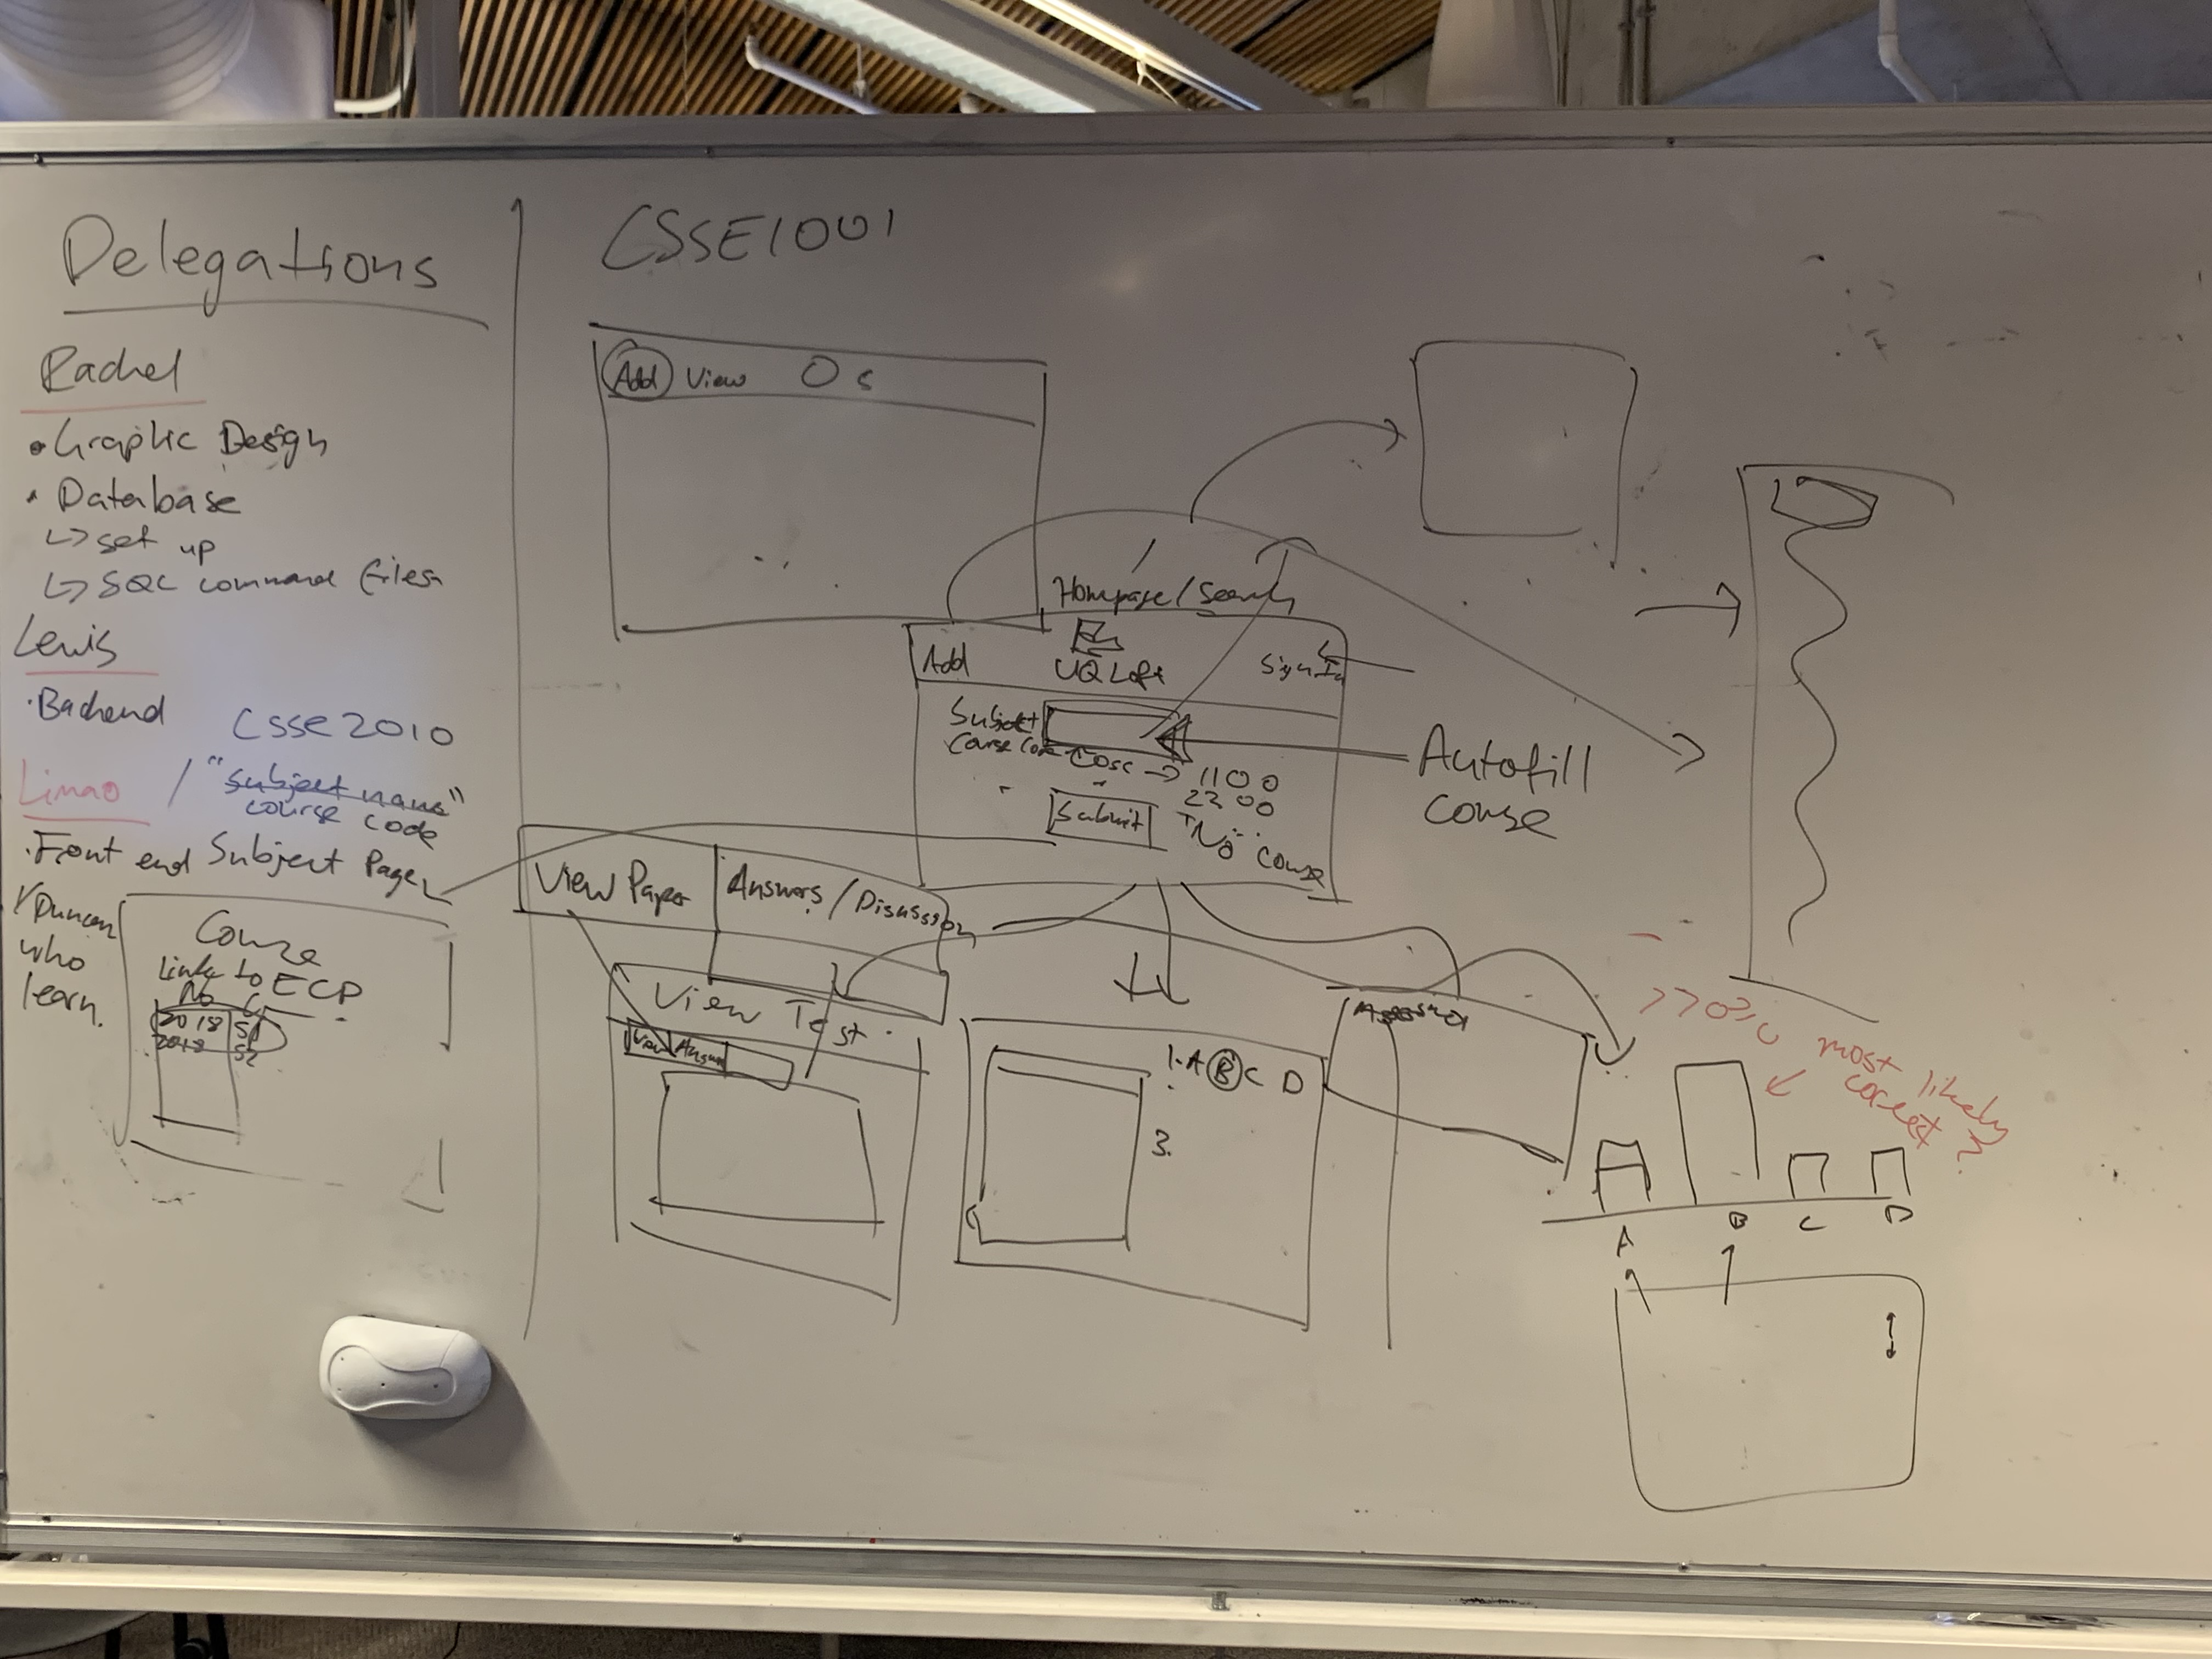 Delegations
Rachel
• Graphic Design
• Database
↳ set up
↳ SQL command files
Lewis
• Backend
CSSE2010
Limao / "subject name"
course code
• Front end Subject Page
Duncan
who
learn.
Course
Link to ECP
No
2018 S1
2018 S2
CSSE1001
Add View
Homepage/Search
Add
UQ Loft
Sign In
Subject
Course Code
Cosc → 1100
2200
"No course
Submit
Autofill
course
View Paper
Answers/Disussion
View Test
View
1. A B C D
3.
>70%
most likely
correct?
A B C D